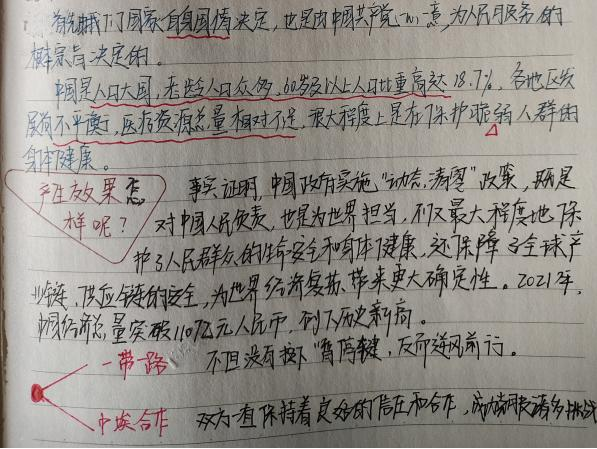 首先我们国家自身国情决定,也是由中国共产党一心一意,为人民服务的
根本宗旨决定的。
中国是人口大国,老龄人口众多,60岁及以上人口比重高达18.7%,各地区发
展前不平衡,医疗资源总量相对不足,很大程度上是在保护脆弱人群的
身体健康。
产生效果怎
样呢?
事实证明,中国政府实施“动态清零”政策,既是
对中国人民负责,也是为世界担当,不仅最大程度地保
护了人民群众的生命安全和身体健康,还保障了全球产
业链,供应链的安全,为世界经济复苏带来更大确定性。2021年,
中国经济总量突破110万亿元人民币,创下历史新高。
一带一路
不但没有按下“暂停键,反而逆风前行。
中埃合作
双方一直保持着良好的信任和合作,成功克服诸多挑战